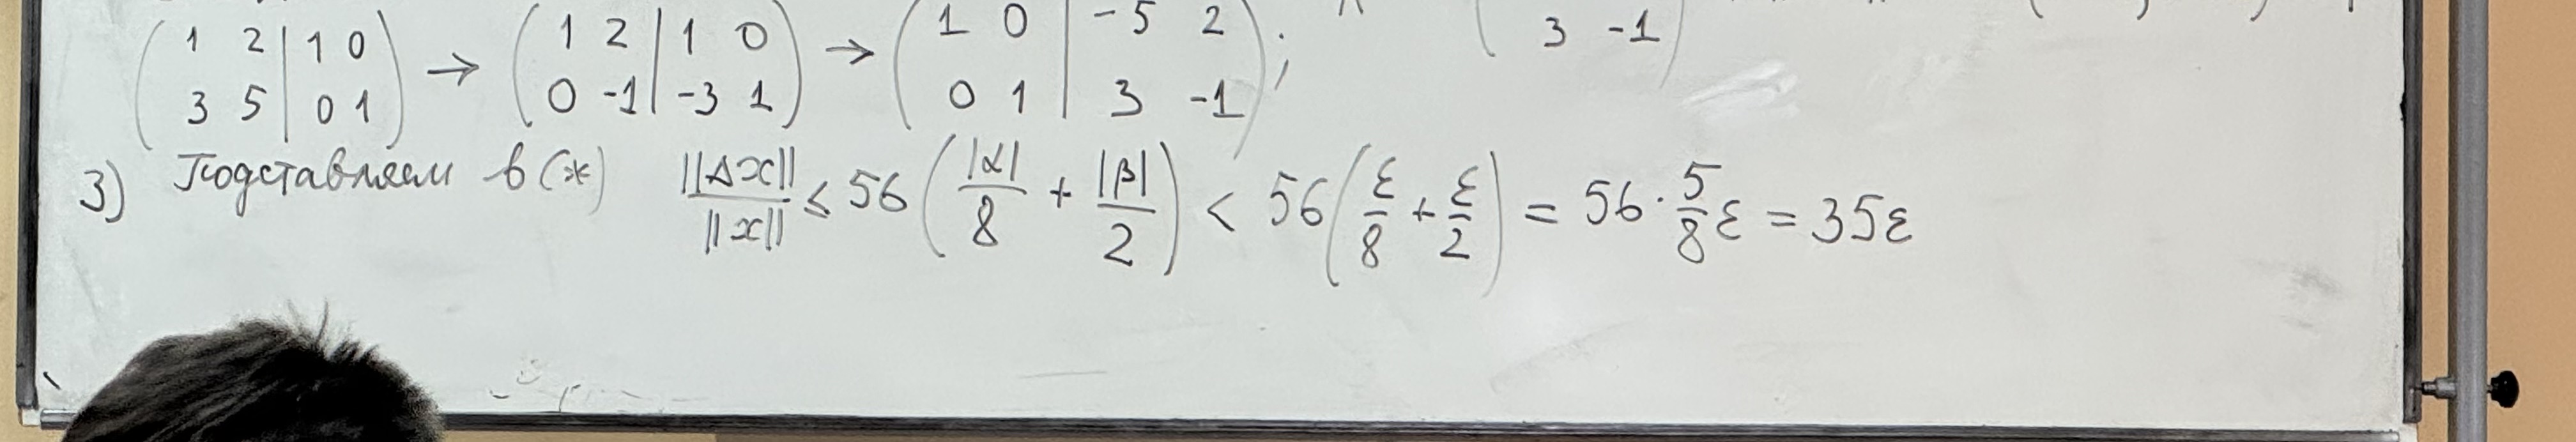 ( 1 2 | 1 0 ) → ( 1 2 | 1 0 ) → ( 1 0 | -5 2 ) ;
( 3 5 | 0 1 ) ( 0 -1 | -3 1 ) ( 0 1 | 3 -1 ) ( 3 -1 )
3) Подставляем в (*) ||Δx||/||x|| ≤ 56 ( |α|/8 + |β|/2 ) < 56 ( ε/8 + ε/2 ) = 56 · 5/8 ε = 35ε